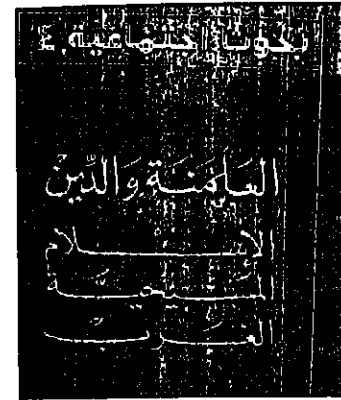 بحوث اجتماعية ٤
العَلمَنَة وَالدّين
الإسلام
المَسيحيَّة
الغَربّ